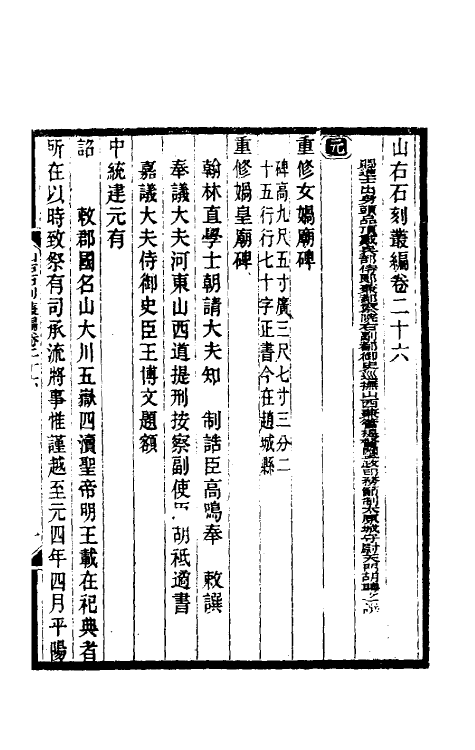 山右石刻叢編卷二十六
賜進士出身頭品頂戴兵部侍郎兼都察院右副都御史巡撫山西兼管提督鹽政印務節制太原城守尉天門胡聘之譔
元
重修女媧廟碑
碑高九尺五寸廣三尺七寸三分二
十五行行七十字正書今在趙城縣
重修媧皇廟碑
翰林直學士朝請大夫知　制誥臣高鳴奉　敕譔
奉議大夫河東山西道提刑按察副使臣　胡祗遹書
嘉議大夫侍御史臣王博文題額
中統建元有
詔　敕郡國名山大川五嶽四瀆聖帝明王載在祀典者
所在以時致祭有司承流將事惟謹越至元四年四月平陽